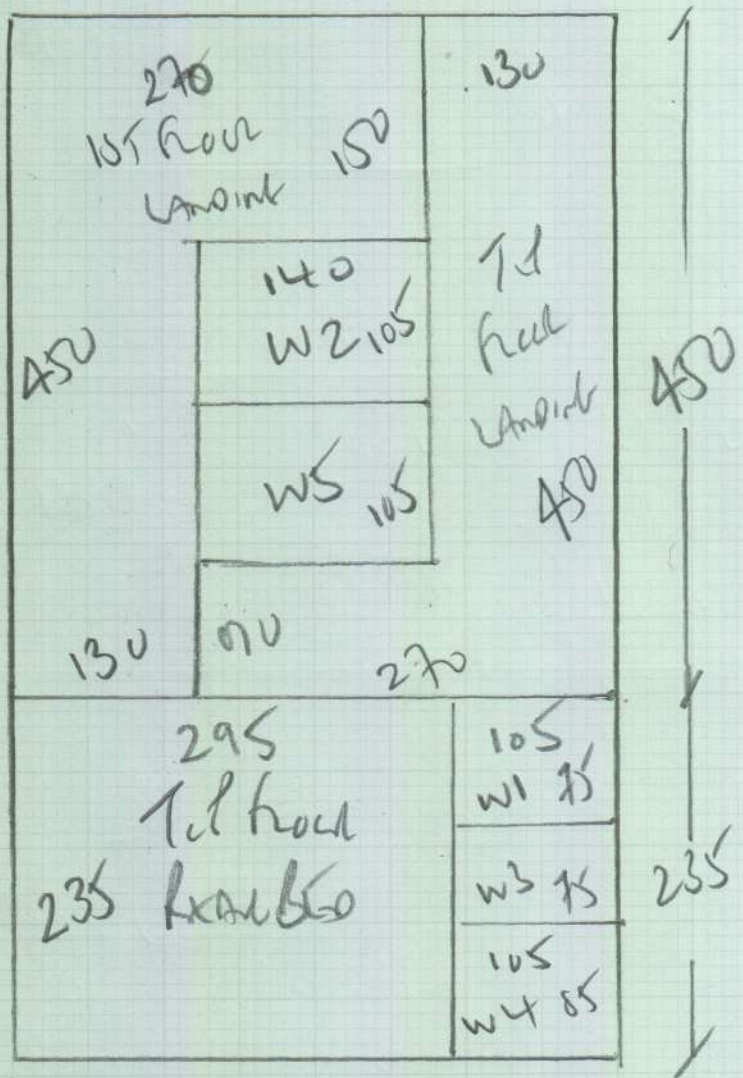 270
1ST Floor
LANDING 150
130
140
W2 105
W5 105
450
Floor
LANDING
450
450
130
90
270
295
Floor
235
105
W1 75
W3 75
105
W4 85
235